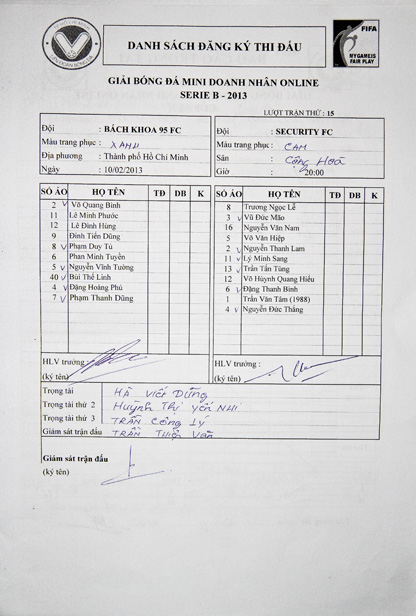 DANH SÁCH ĐĂNG KÝ THI ĐẤU
FIFA
MY GAME IS
FAIR PLAY
GIẢI BÓNG ĐÁ MINI DOANH NHÂN ONLINE
SERIE B - 2013
LƯỢT TRẬN THỨ : 15
Đội : BÁCH KHOA 95 FC
Màu trang phục : XANH
Địa phương : Thành phố Hồ Chí Minh
Ngày : 10/02/2013
Đội : SECURITY FC
Màu trang phục : CAM
Sân : CỘNG HOÀ
Giờ : 20:00
SỐ ÁO HỌ TÊN TĐ DB K
2 v Võ Quang Bình
11 Lê Minh Phước
12 Lê Đình Hùng
9 Đinh Tiến Dũng
8 v Phạm Duy Tú
6 Phan Minh Tuyền
5 v Nguyễn Vĩnh Tường
40 v Bùi Thế Linh
4 v Đặng Hoàng Phú
7 v Phạm Thanh Dũng
SỐ ÁO HỌ TÊN TĐ DB K
8 Trương Ngọc Lễ
3 v Vũ Đức Mão
16 Nguyễn Văn Nam
5 Võ Văn Hiệp
2 v Nguyễn Thanh Lam
11 v Lý Minh Sang
13 v Trần Tấn Tùng
12 Võ Huỳnh Quang Hiếu
6 v Đặng Thanh Bình
1 Trần Văn Tâm (1988)
4 v Nguyễn Đức Thắng
HLV trưởng :
(ký tên)
HLV trưởng :
(ký tên)
Trọng tài HÀ VIẾT DŨNG
Trọng tài thứ 2 HUỲNH THỊ YẾN NHI
Trọng tài thứ 3 TRẦN CÔNG LÝ
Giám sát trận đấu TRẦN THIỆN VĂN
Giám sát trận đấu :
(ký tên)